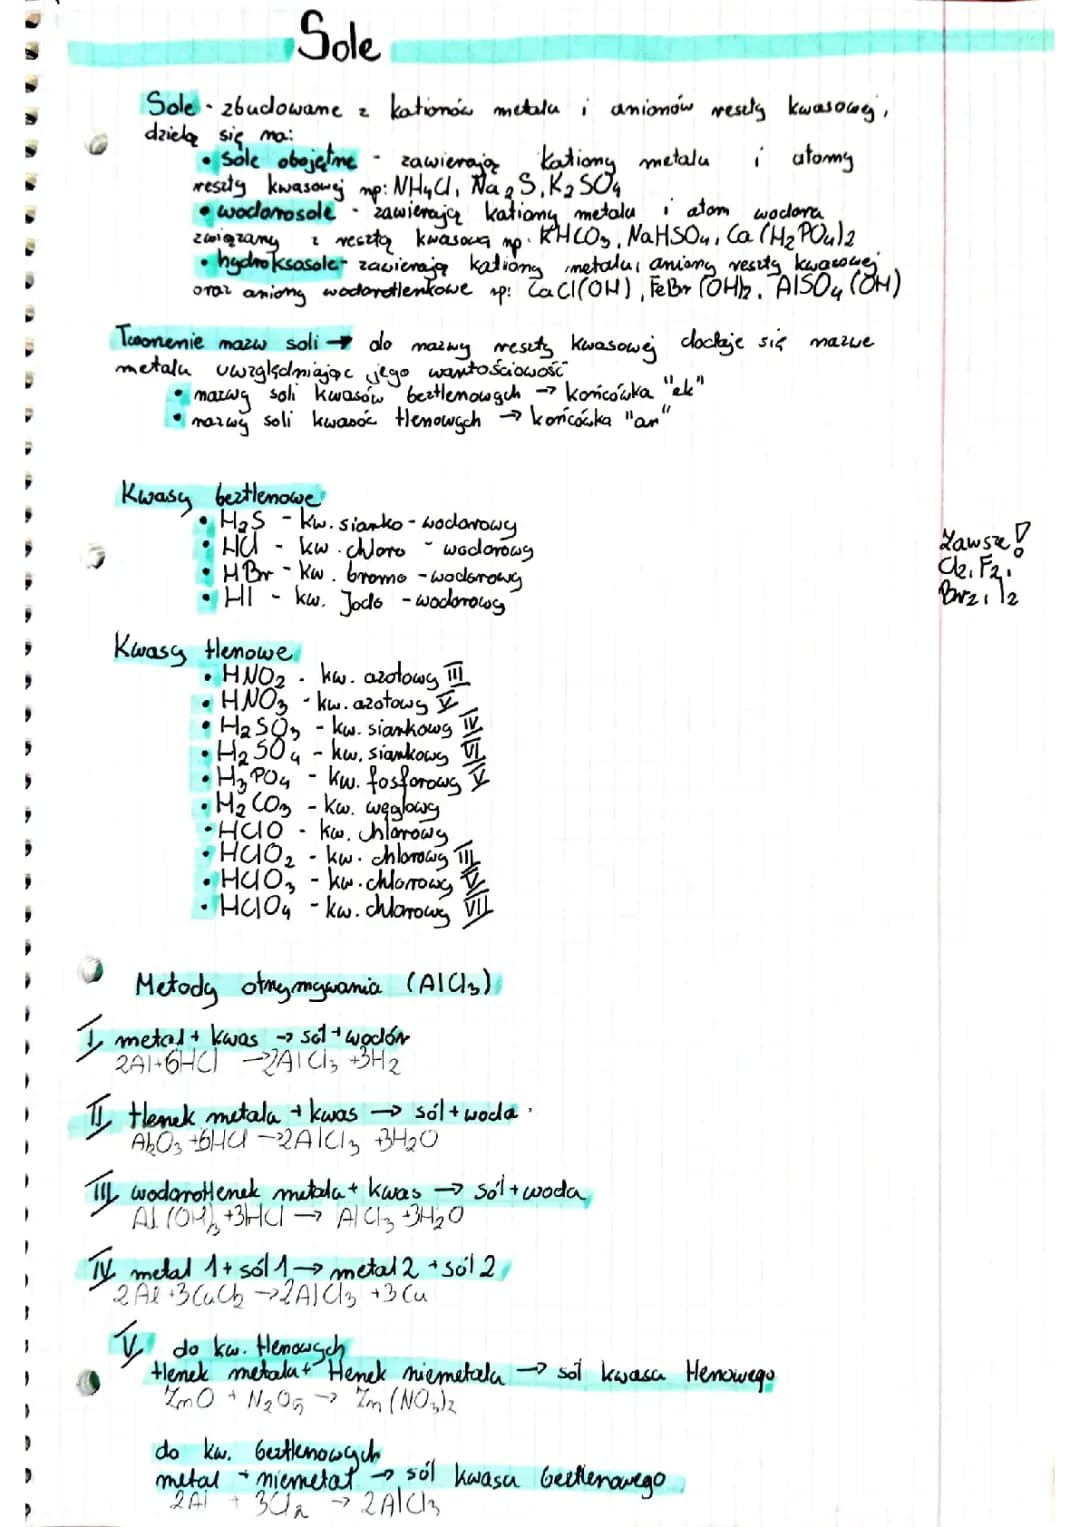 Sole
Sole - zbudowane z kationów metalu i anionów reszty kwasowej,
dzielą się na:
• Sole obojętne - zawierają kationy metalu i atomy
reszty kwasowej np: NH4Cl, Na2S, K2SO4
• wodorosole - zawierają kationy metalu i atom wodoru
związany z resztą kwasową np. KHCO3, NaHSO4, Ca(H2PO4)2
• hydroksosole - zawierają kationy metalu, aniony reszty kwasowej
oraz aniony wodorotlenkowe np: CaCl(OH), FeBr(OH)2, AlSO4(OH)
Tworzenie nazw soli → do nazwy reszty kwasowej dodaje się nazwe
metalu uwzględniając jego wartościowość
• nazwy soli kwasów beztlenowych → końcówka "ek"
• nazwy soli kwasóc tlenowych → końcówka "an"
Kwasy beztlenowe
• H2S - kw. siarko-wodorowy
• HCl - kw. chloro - wodorowy
• HBr - kw. bromo - wodorowy
• HI - kw. Jodo - wodorowy
Zawsze!
Cl2, F2,
Br2, I2
Kwasy tlenowe
• HNO2 - kw. azotowy III
• HNO3 - kw. azotowy V
• H2SO3 - kw. siarkowy IV
• H2SO4 - kw. siarkowy VI
• H3PO4 - kw. fosforowy V
• H2CO3 - kw. węglowy
• HClO - kw. chlorowy
• HClO2 - kw. chlorowy III
• HClO3 - kw. chlorowy V
• HClO4 - kw. chlorowy VII
Metody otrzymywania (AlCl3)
I. metal + kwas → sól + wodór
2Al+6HCl → 2AlCl3 +3H2
II. tlenek metalu + kwas → sól + woda
Al2O3 +6HCl → 2AlCl3 +3H2O
III. wodorotlenek metalu + kwas → sól + woda
Al(OH)3 +3HCl → AlCl3 +3H2O
IV. metal 1 + sól 1 → metal 2 + sól 2
2Al +3CuCl2 → 2AlCl3 +3Cu
V. do kw. tlenowych
tlenek metalu + tlenek niemetalu → sól kwasu tlenowego
ZnO + N2O5 → Zn(NO3)2
do kw. beztlenowych
metal + niemetal → sól kwasu beztlenowego
2Al + 3Cl2 → 2AlCl3